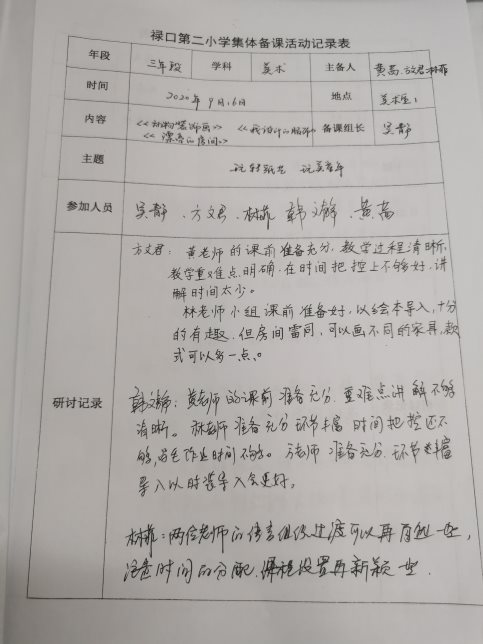 禄口第二小学集体备课活动记录表
年段 三年段 学科 美术 主备人 黄高.方文君.林菲
时间 2020年9月16日 地点 美术室1
内容 《动物装饰画》 《我设计的服饰》 备课组长 吴静
《漂亮的房间》
主题 玩转纸艺
参加人员 吴静、方文君、林菲 韩文静、黄高
研讨记录
方文君：黄老师的课前准备充分，教学过程清晰，
教学重难点明确，在时间把控上不够好，讲
解时间太少。
林老师小组课前准备好，以绘本导入，十分
的有趣，但房间雷同，可以画不同的家具，款
式可以多一点。
韩文静：黄老师的课前准备充分，重难点讲解不够
清晰。林老师准备充分环节丰富 时间把控还不
够，学生作业时间不够。方老师准备充分，环节丰富
导入以时装导入会更好。
林菲：两位老师的语言组织过渡可以再自然一些，
注意时间的分配，课程设置再新颖一些.